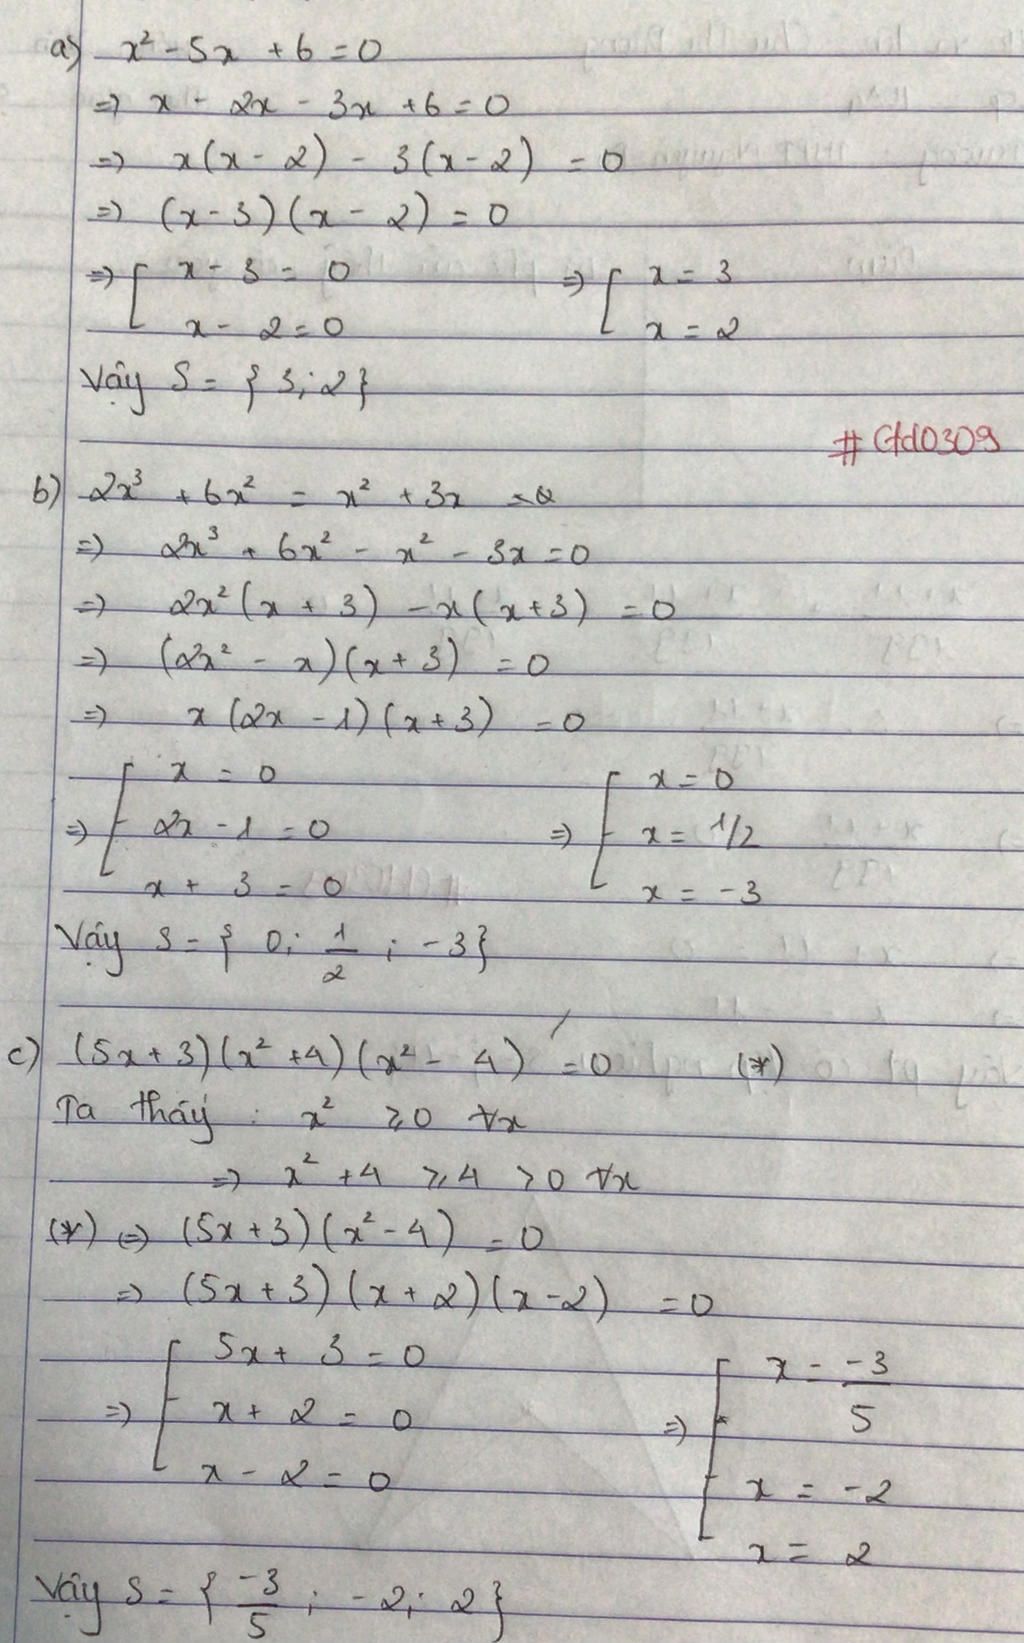 a) x² - 5x + 6 = 0
=> x - 2x - 3x + 6 = 0
=> x(x - 2) - 3(x - 2) = 0
=> (x - 3)(x - 2) = 0
=> [ x - 3 = 0 => [ x = 3
x - 2 = 0 x = 2
Vậy S = { 3; 2 }
# Gfd0309
b) 2x³ + 6x² = x² + 3x
=> 2x³ + 6x² - x² - 3x = 0
=> 2x²(x + 3) - x(x + 3) = 0
=> (2x² - x)(x + 3) = 0
=> x(2x - 1)(x + 3) = 0
x = 0 x = 0
=> [ 2x - 1 = 0 => [ x = 1/2
x + 3 = 0 x = -3
Vậy S = { 0; 1/2 ; -3 }
c) (5x + 3)(x² + 4)(x² - 4) = 0 (*)
Ta thấy : x² ≥ 0 ∀x
=> x² + 4 ≥ 4 > 0 ∀x
(*) <=> (5x + 3)(x² - 4) = 0
=> (5x + 3)(x + 2)(x - 2) = 0
5x + 3 = 0 x = -3/5
=> [ x + 2 = 0 => [ x = -2
x - 2 = 0 x = 2
Vậy S = { -3/5 ; -2; 2 }